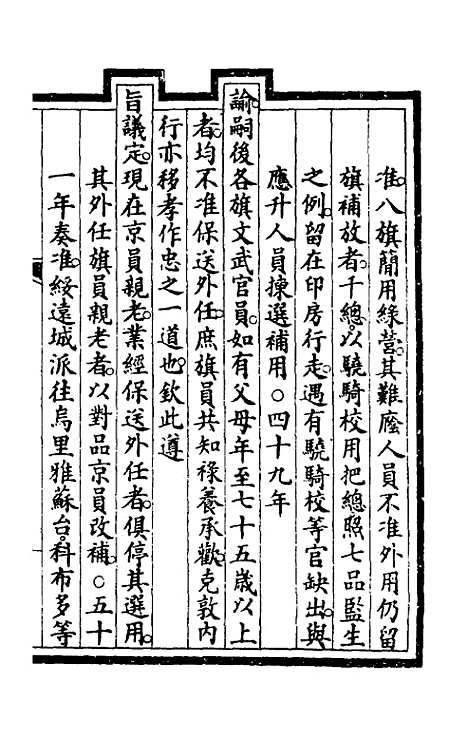 准八旗簡用綠營其難廕人員不准外用仍留
旗補放者千總以驍騎校用把總照七品監生
之例留在印房行走遇有驍騎校等官缺出與
應升人員揀選補用○四十九年
諭嗣後各旗文武官員如有父母年至七十五歲以上
者均不准保送外任庶旗員共知祿養承歡克敦內
行亦移孝作忠之一道也欽此遵
旨議定現在京員親老業經保送外任者俱停其選用
其外任旗員親老者以對品京員改補○五十
一年奏准綏遠城派往烏里雅蘇台科布多等